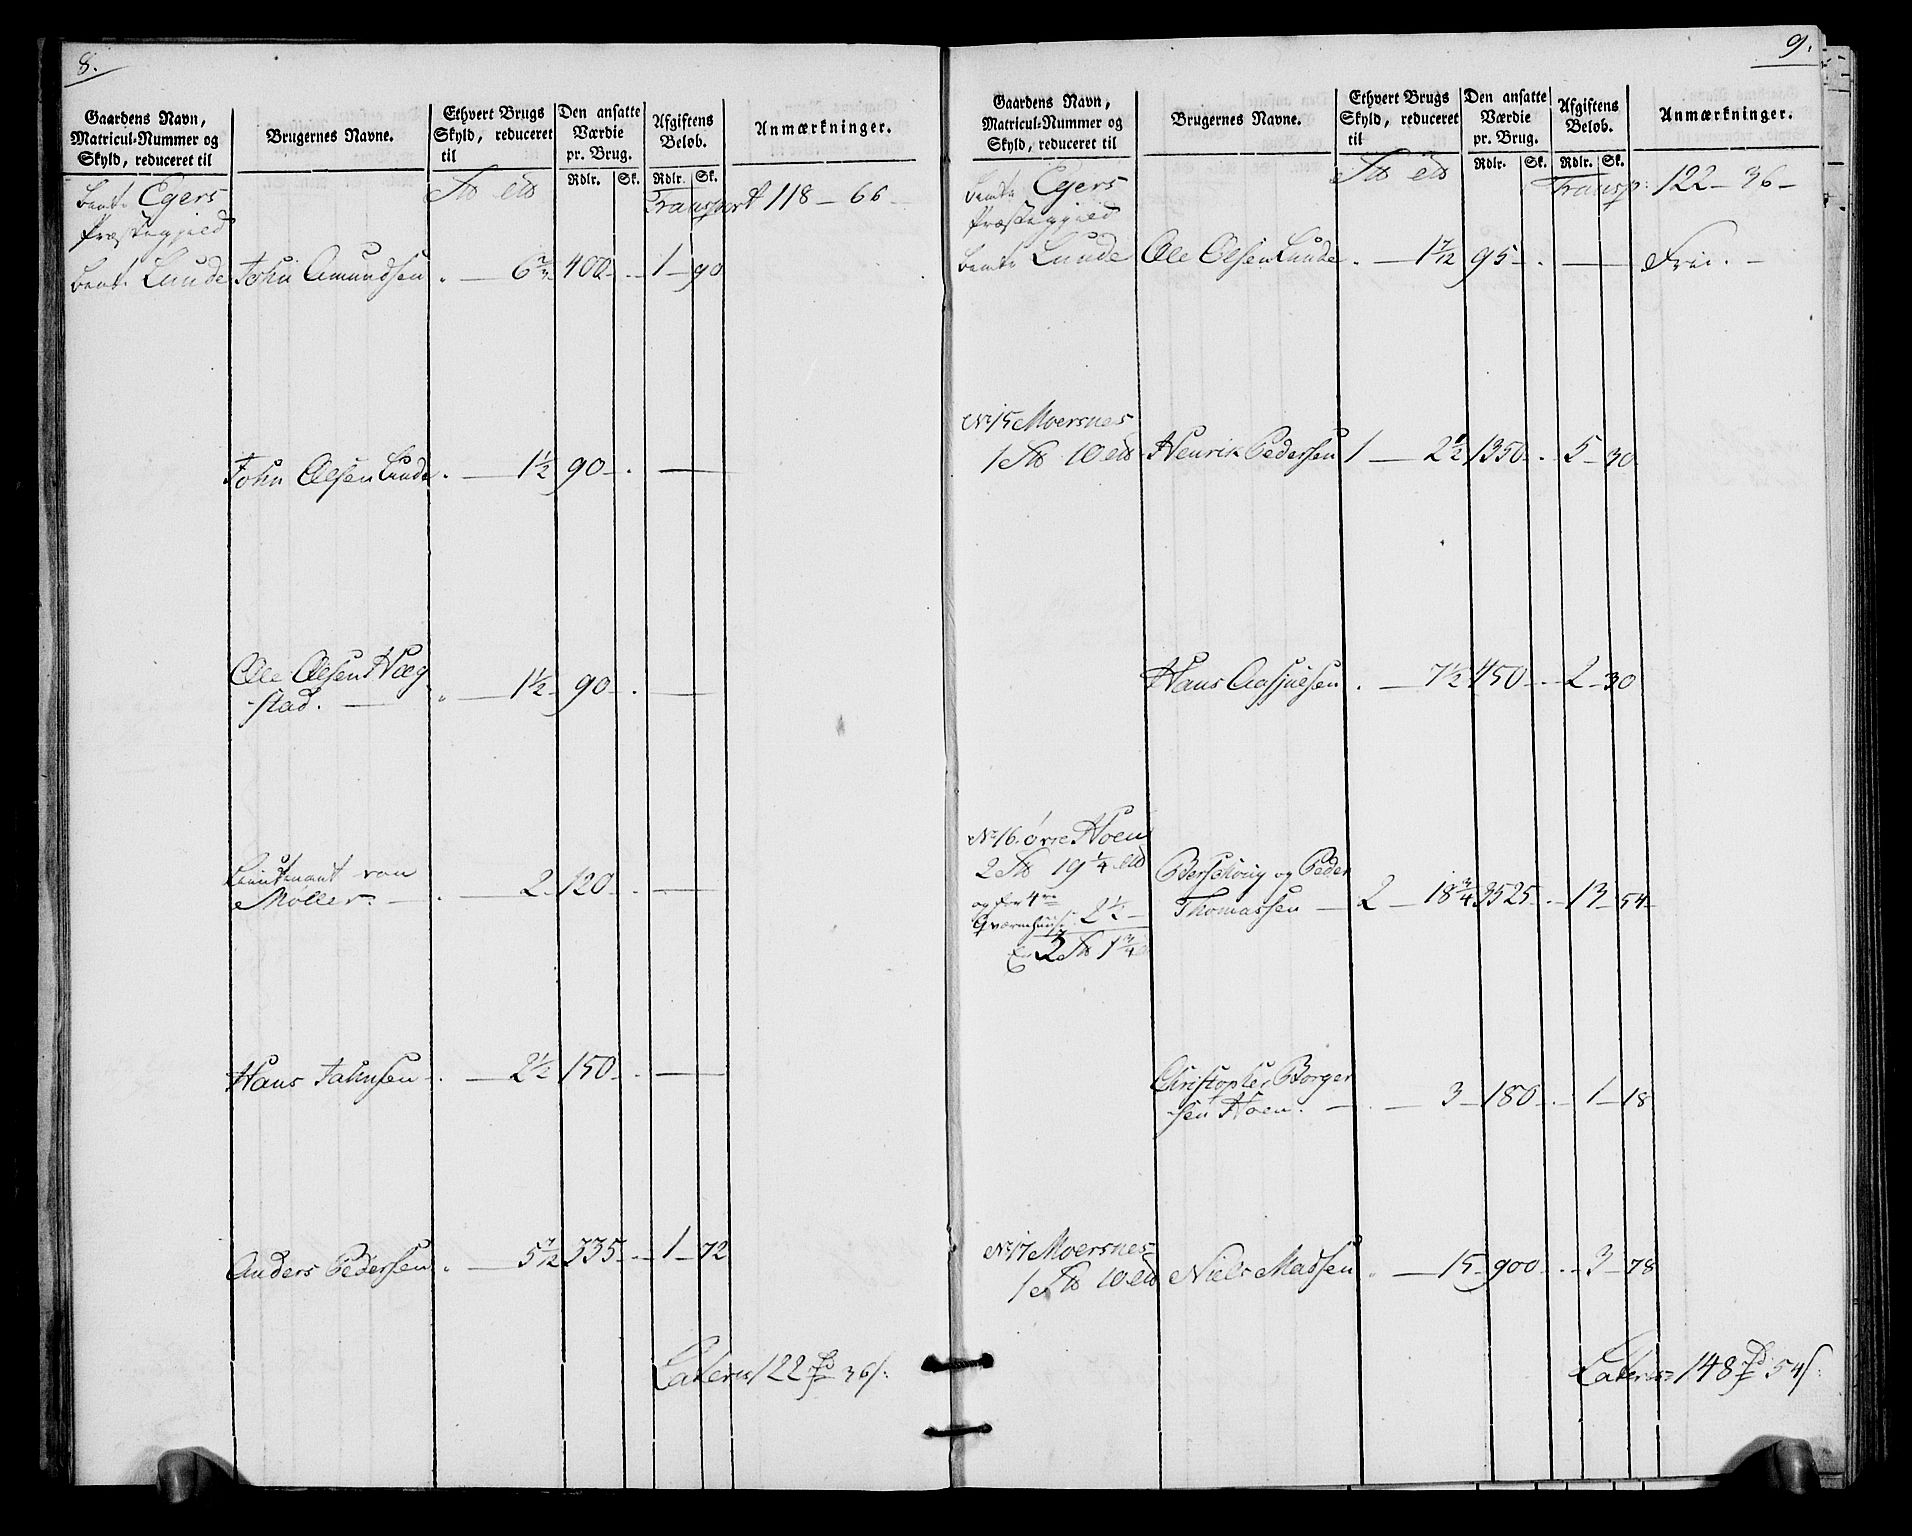 8.
Gaardens Navn,
Matricul-Nummer og
Skyld, reduceret til
Brugernes Navne.
Ethvert Brugs
Skyld, reduceret
til
Den ansatte
Værdie
pr. Brug.
Rdlr. Sk.
Afgiftens
Beløb.
Rdlr. Sk.
Anmærkninger.
Egers
Præstegjeld
Transport 118 - 66 -
Lunde John Amundsen . - 6 2/3 400 - . 1 - 90
John Olsen Lunde . - 1 1/2 90 - . -
Ole Olsen Hæg
-stad. - 1 1/2 - 90 - . -
Lieutenant von
Møller. - . - 2 - 120 - . -
Hans Johnsen - . - 2 1/2 150 - . -
Anders Pedersen . - 5 7/12 335 - - 1 - 72
Lateris 122 36
9.
Gaardens Navn,
Matricul-Nummer og
Skyld, reduceret til
Brugernes Navne.
Ethvert Brugs
Skyld, reduceret
til
Den ansatte
Værdie
pr. Brug.
Rdlr. Sk.
Afgiftens
Beløb.
Rdlr. Sk.
Anmærkninger.
Egers
Præstegjeld
Transp: 122 - 36 -
Lunde Ole Olsen Lunde . - 1 7/12 95 - . - Frie. -
No 15 Moersnes
1 10 Henrik Pedersen 1 - 2 1/2 1350 - . 5 - 30
Hans . - 7 1/2 450 - . - 2 - 30
No 16. øvre Hoen
2 19 1/4
og for 4re
Qværnhuuse 2 1/2
Er 3 1 3/4
og Peder
Thomassen - 2 - 18 3/4 3525 - . - 13 - 54 -
Christopher Borger
-sen Hoen. - . - 3 - 180 - . - 1 - 18
No 17 Moersnes
1 10 Niels Madsen . - 15 - 900 - . - 3 - 78
Lateris 148 54